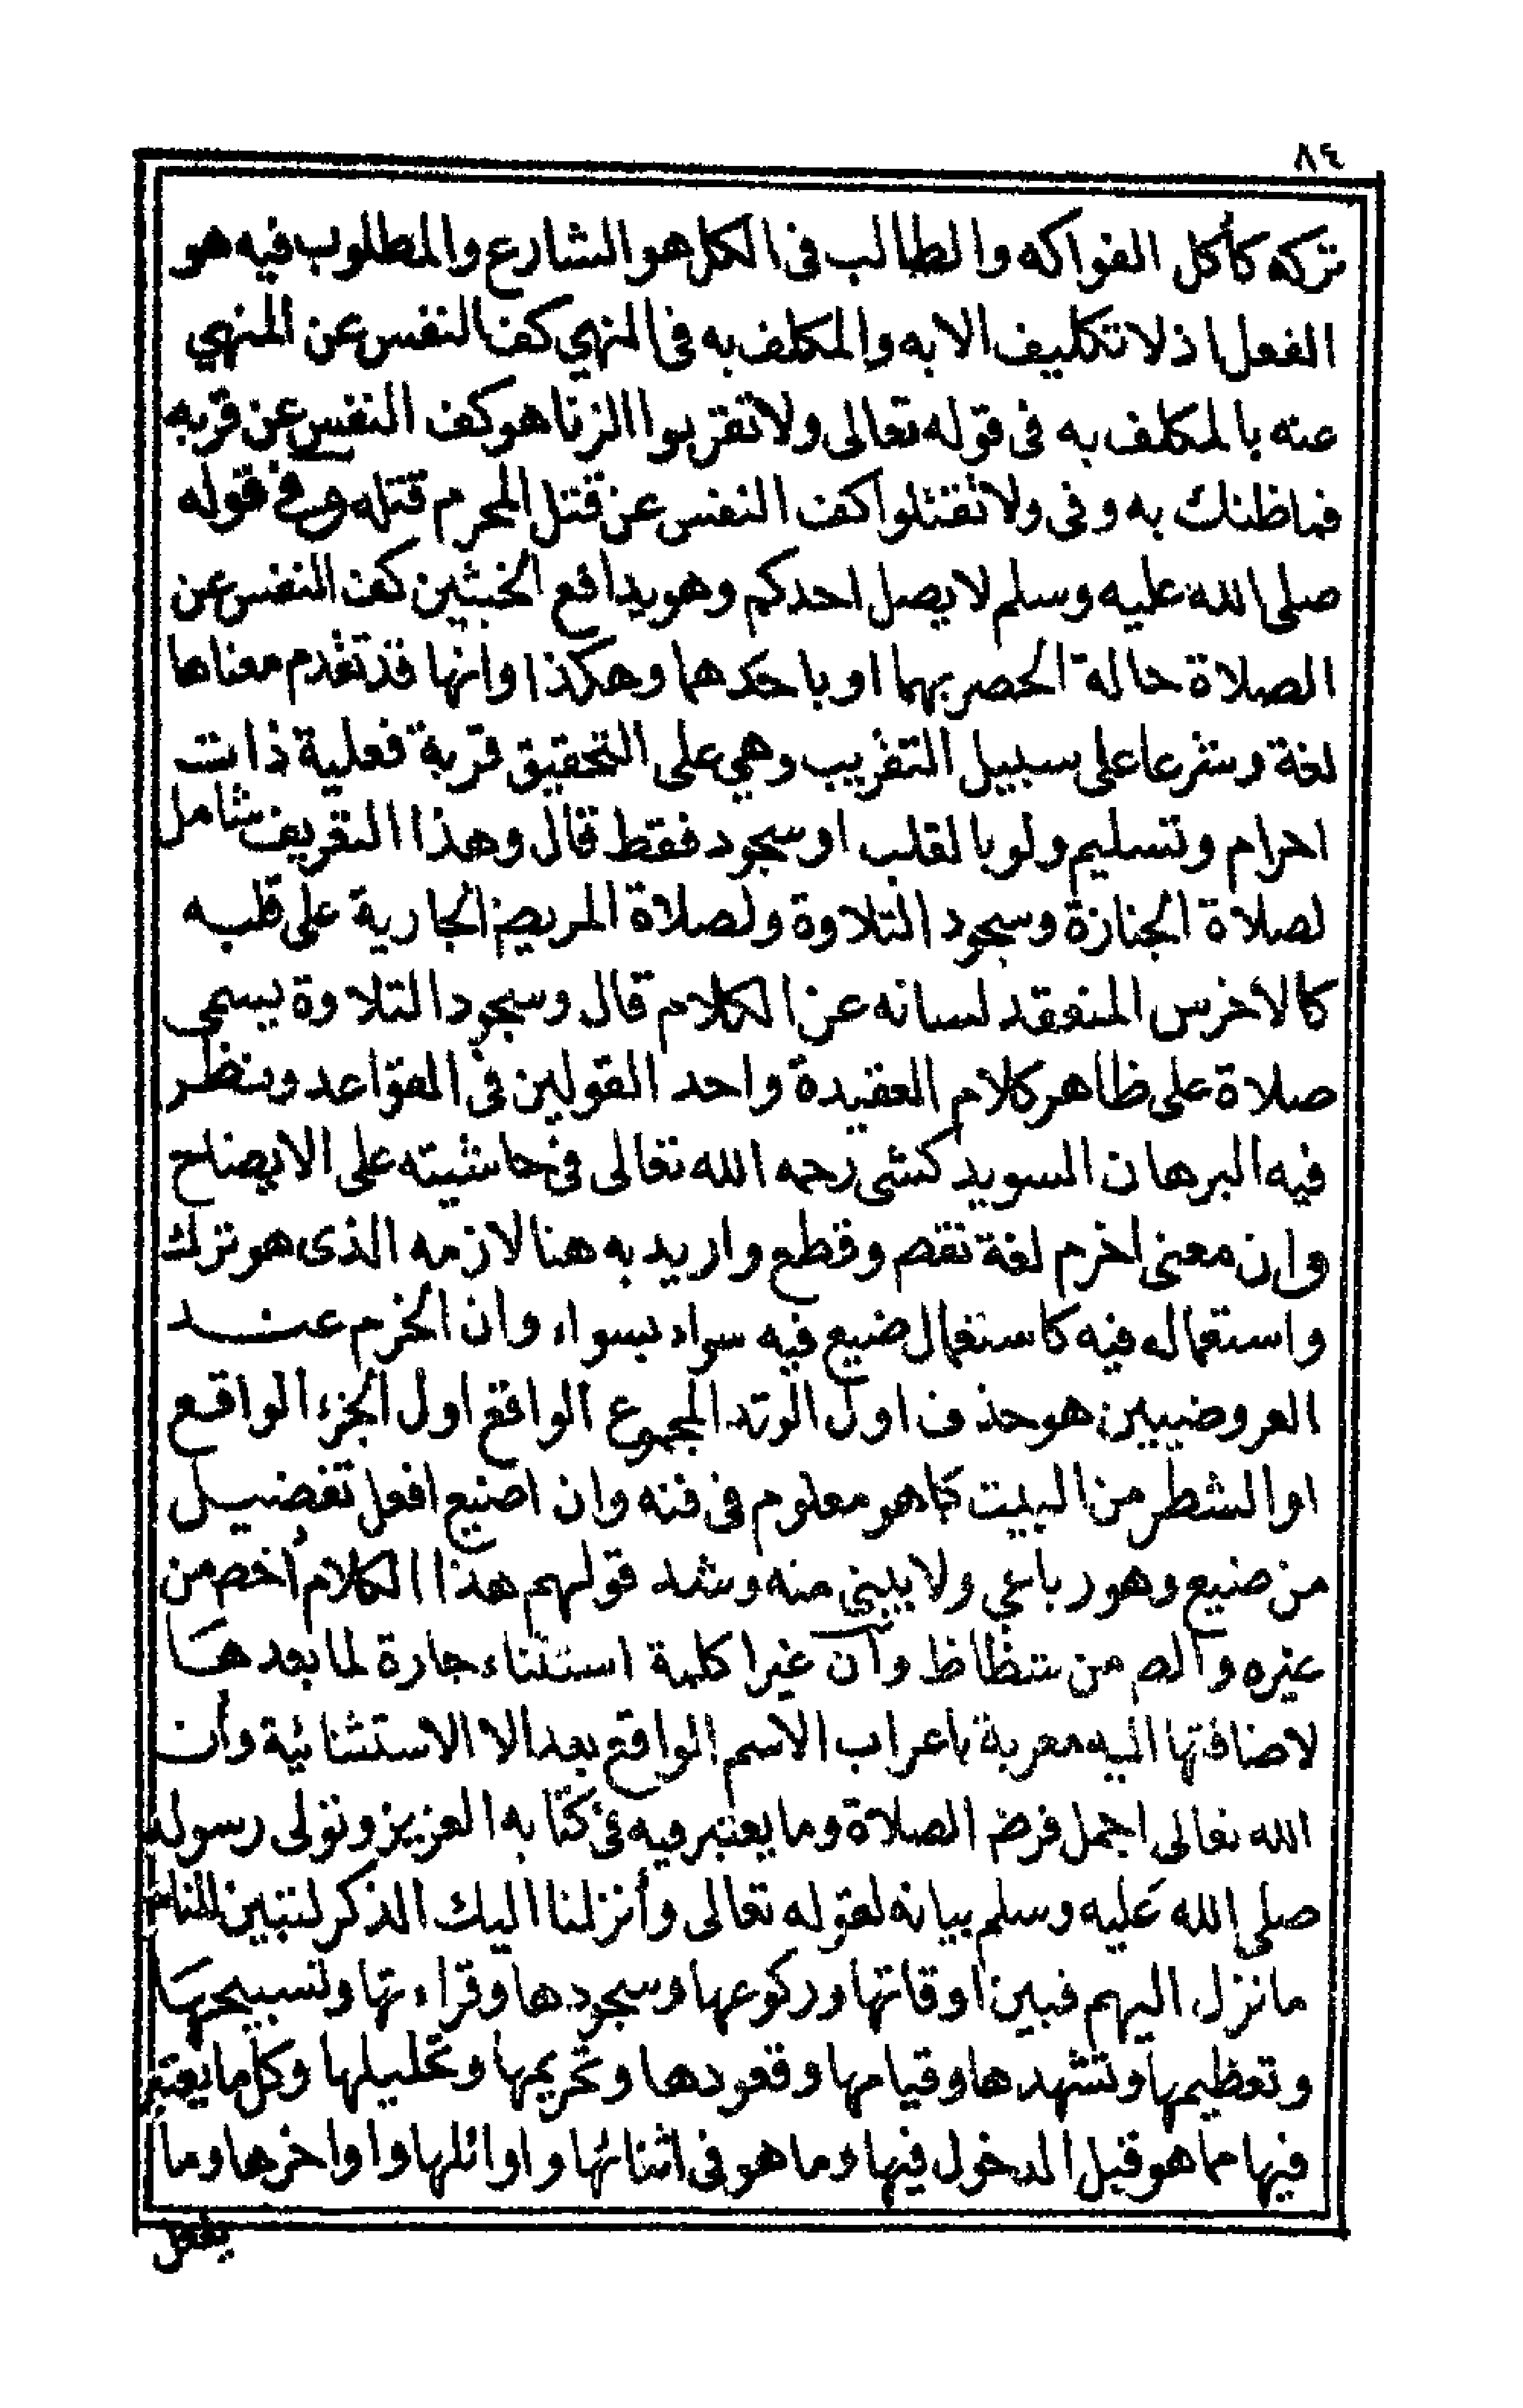 ٨٤
تركه كأكل الفواكه والطالب فى الكل هو الشارع والمطلوب فيه هو
الفعل اذ لا تكليف الا به والمكلف به فى النهي كف النفس عن المنهي
عنه بالمكلف به فى قوله تعالى ولا تقربوا الزنا هو كف النفس عن قربه
فماظنك به وفى ولا تقتلوا كف النفس عن قتل المحرم قتله وفى قوله
صلى الله عليه وسلم لا يصل احدكم وهو يدافع الخبثين كف النفس عن
الصلاة حالة الحصر بهما او باحدهما وهكذا وانها قد تقدم معناها
لغة وشرعا على سبيل التقريب وهي على التحقيق قربة فعلية ذات
احرام وتسليم ولو بالقلب او سجود فقط قال وهذا التعريف شامل
لصلاة الجنازة وسجود التلاوة ولصلاة المريض الجارية على قلبه
كالاخرس المنعقد لسانه عن الكلام قال وسجود التلاوة يسمى
صلاة على ظاهر كلام العقيدة واحد القولين فى القواعد وينظر
فيه البرهان السويدكشى رحمه الله تعالى فى حاشيته على الايضاح
وان معنى اخرم لغة نقص وقطع واريد به هنا لازمه الذى هو ترك
واستعماله فيه كاستعمال ضيع فيه سواء بسواء وان الخرم عند
العروضيين هو حذف اول الوتد المجموع الواقع اول الجزء الواقع
اوالشطر من البيت كما هو معلوم فى فنه وان اضيع افعل تفضيل
من ضيع وهو رباعي ولا يبنى منه وشذ قولهم هذا الكلام أخصر من
غيره وألص من شظاظ وأن غيرا كلمة استثناء جارة لما بعدها
لاضافتها اليه معربة باعراب الاسم الواقع بعد الا الاستثنائية وأن
الله تعالى اجمل فرض الصلاة وما يعتبر فيه فى كتابه العزيز وتولى رسوله
صلى الله عليه وسلم بيانه لقوله تعالى وأنزلنا اليك الذكر لتبين للناس
مانزل اليهم فبين اوقاتها وركوعها وسجودها وقراءتها وتسبيحها
وتعظيمها وتشهدها وقيامها وقعودها وتحريمها وتحليلها وكل ما يعتبر
فيها مما هو قبل الدخول فيها وما هو فى اثنائها واوائلها واواخرها وما
يفعل